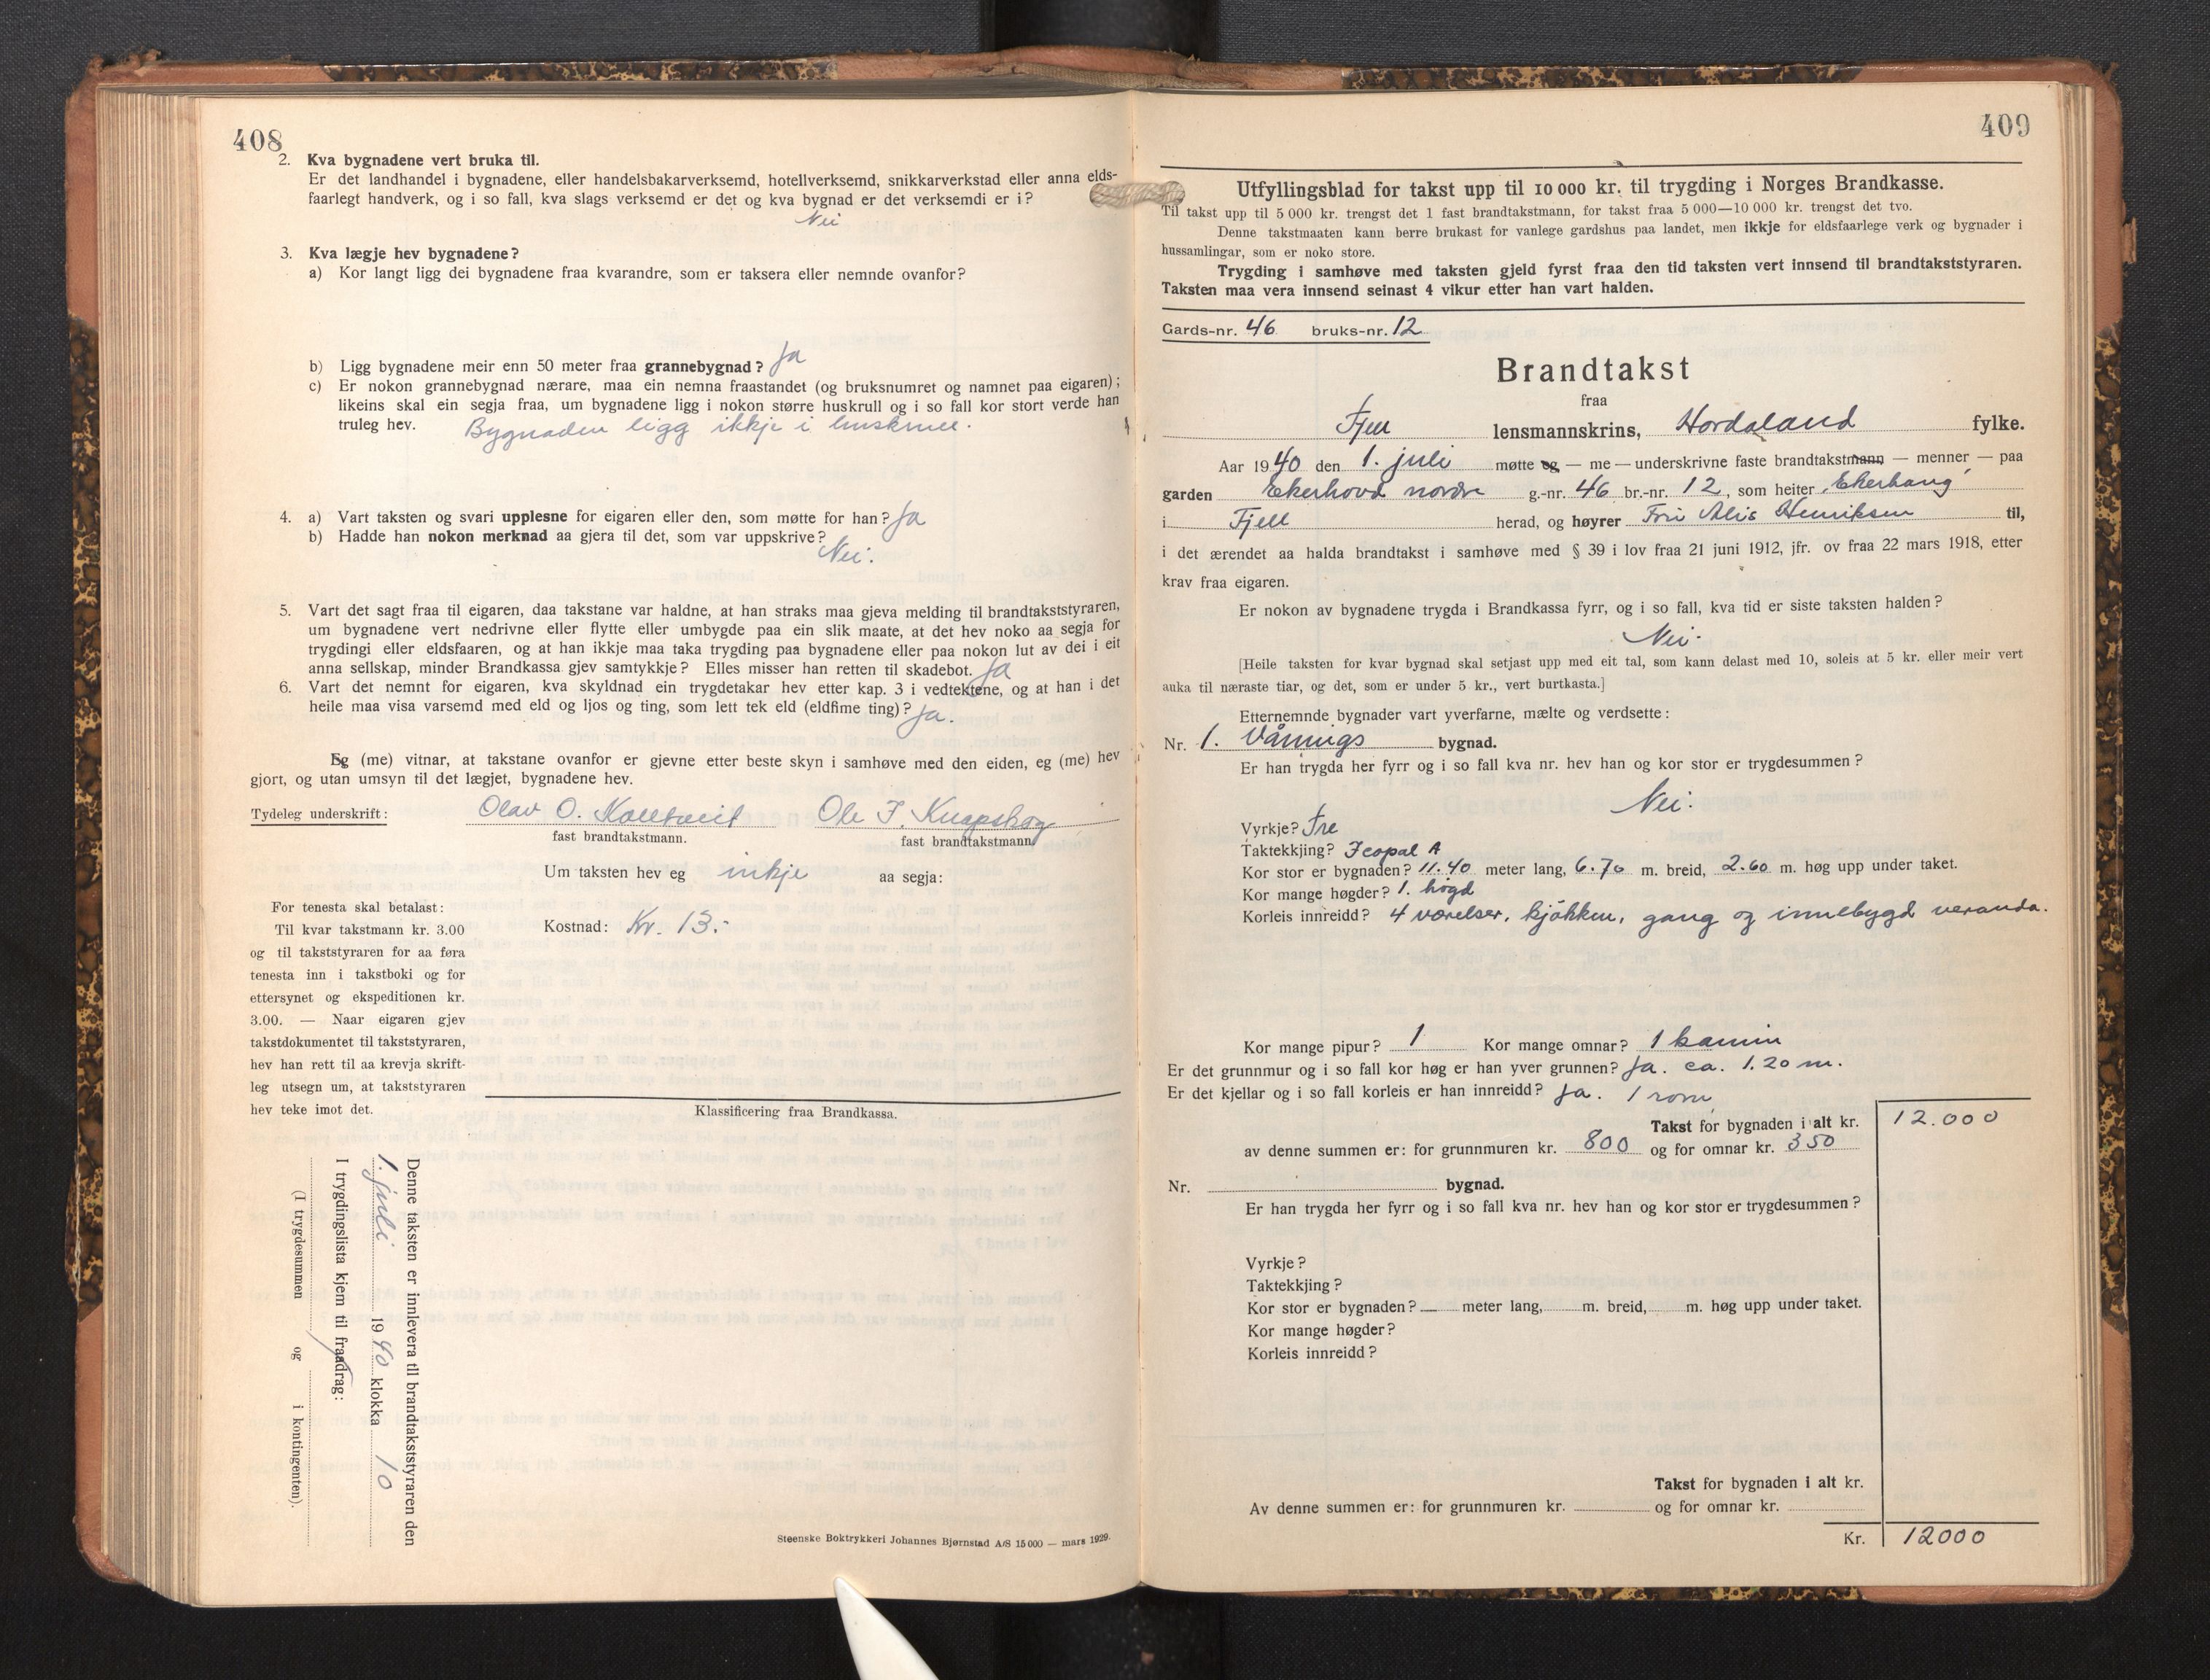 408
2. Kva bygnadene vert bruka til.
Er det landhandel i bygnadene, eller handelsbakarverksemd, hotellverksemd, snikkarverkstad eller anna elds-
faarlegt handverk, og i so fall, kva slags verksemd er det og kva bygnad er det verksemdi er i?
Nei
3. Kva lægje hev bygnadene?
a) Kor langt ligg dei bygnadene fraa kvarandre, som er taksera eller nemnde ovanfor?
b) Ligg bygnadene meir enn 50 meter fraa grannebygnad? Ja
c) Er nokon grannebygnad nærare, maa ein nemna fraastandet (og bruksnumret og namnet paa eigaren);
likeins skal ein segja fraa, um bygnadene ligg i nokon større huskrull og i so fall kor stort verde han
truleg hev. Bygnaden ligg ikkje i huskrull.
4. a) Vart taksten og svari upplesne for eigaren eller den, som møtte for han? Ja
b) Hadde han nokon merknad aa gjera til det, som var uppskrive?
Nei.
5. Vart det sagt fraa til eigaren, daa takstane var haldne, at han straks maa gjeva melding til brandtakststyraren,
um bygnadene vert nedrivne eller flytte eller umbygde paa ein slik maate, at det hev noko aa segja for
trygdingi eller eldsfaaren, og at han ikkje maa taka trygding paa bygnadene eller paa nokon lut av dei i eit
anna sellskap, minder Brandkassa gjev samtykkje? Elles misser han retten til skadebot. Ja
6. Vart det nemnt for eigaren, kva skyldnad ein trygdetakar hev etter kap. 3 i vedtektene, og at han i det
heile maa visa varsemd med eld og ljos og ting, som lett tek eld (eldfime ting)? Ja.
Eg (me) vitnar, at takstane ovanfor er gjevne etter beste skyn i samhøve med den eiden, eg (me) hev
gjort, og utan umsyn til det lægjet, bygnadene hev.
Tydeleg underskrift: Olav O. Kallestveit Ole J. Knapskog
fast brandtakstmann. fast brandtakstmann
Um taksten hev eg inkje aa segja:
For tenesta skal betalast:
Til kvar takstmann kr. 3.00
og til takststyraren for aa føra
tenesta inn i takstboki og for
ettersynet og ekspeditionen kr.
3.00. — Naar eigaren gjev
takstdokumentet til takststyraren,
hev han rett til aa krevja skrift-
leg utsegn um, at takststyraren
hev teke imot det.
Kostnad: Kr. 13.-
Klassificering fraa Brandkassa.
Denne taksten er innlevera tll brandtakststyraren den
1. juli 1940 klokka 10
I trygdingslista kjem til fraadrag:
(I trygdesummen og i kontingenten).
Steenske Boktrykkeri Johannes Bjørnstad A/S 15 000 — mars 1929.
409
Utfyllingsblad for takst upp til 10 000 kr. til trygding i Norges Brandkasse.
Til takst upp til 5 000 kr. trengst det 1 fast brandtakstmann, for takst fraa 5 000—10 000 kr. trengst det tvo.
Denne takstmaaten kann berre brukast for vanlege gardshus paa landet, men ikkje for eldsfaarlege verk og bygnader i
hussamlingar, som er noko store.
Trygding i samhøve med taksten gjeld fyrst fraa den tid taksten vert innsend til brandtakststyraren.
Taksten maa vera innsend seinast 4 vikur etter han vart halden.
Gards-nr. 46 bruks-nr. 12
Brandtakst
fraa
Fjell lensmannskrins, Hordaland fylke.
Aar 1940 den 1. juli møtte eg — me — underskrivne faste brandtakstmann — menner — paa
garden Ekerhovd nordre g.-nr. 46 br.-nr. 12, som heiter "Ekerhaug"
i Fjell herad, og høyrer Fru Alis Henriksen til,
i det ærendet aa halda brandtakst i samhøve med § 39 i lov fraa 21 juni 1912, jfr. ov fraa 22 mars 1918, etter
krav fraa eigaren.
Er nokon av bygnadene trygda i Brandkassa fyrr, og i so fall, kva tid er siste taksten halden?
Nei.
[Heile taksten for kvar bygnad skal setjast upp med eit tal, som kann delast med 10, soleis at 5 kr. eller meir vert
auka til næraste tiar, og det, som er under 5 kr., vert burtkasta.]
Etternemnde bygnader vart yverfarne, mælte og verdsette:
Nr. 1. Vånings bygnad.
Er han trygda her fyrr og i so fall kva nr. hev han og kor stor er trygdesummen?
Nei.
Vyrkje? Tre
Taktekkjing? Icopal A
Kor stor er bygnaden? 11.40 meter lang, 6.70 m. breid, 2.60 m. høg upp under taket.
Kor mange høgder? 1. høgd
Korleis innreidd? 4 værelser, kjøkken, gang og innebygd veranda.
Kor mange pipur? 1 Kor mange omnar? 1 kamin
Er det grunnmur og i so fall kor høg er han yver grunnen? Ja. ca. 1.20 m.
Er det kjellar og i so fall korleis er han innreidd? Ja. 1 rom
Takst for bygnaden i alt kr. 12.000
av denne summen er: for grunnmuren kr. 800 og for omnar kr. 350
Nr. bygnad.
Er han trygda her fyrr og i so fall kva nr. hev han og kor stor er trygdesummen?
Vyrkje?
Taktekkjing?
Kor stor er bygnaden? meter lang, m. breid, m. høg upp under taket.
Kor mange høgder?
Korleis innreidd?
Takst for bygnaden i alt kr.
Av denne summen er: for grunnmuren kr. og for omnar kr.
Kr. 12000